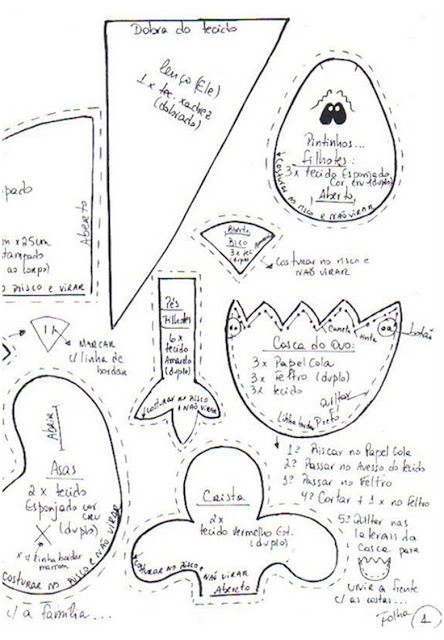 Dobra do tecido
lenço (Ele)
1 x tec. xadrez
(dobrado)
Pintinhos...
filhotes:
3 x tecido Esponjado
Cor cru (duplo)
Aberto
Costurar no risco e NÃO VIRAR
pado
Aberto
m x 25cm
tampado
ao corpo)
O RISCO e VIRAR
Aberto
Bico
3 x tec
Amarelo
duplo
Costurar no risco e
NÃO VIRAR
1A
MARCAR
c/ linha de
bordar
Pés
Filhotes
6 x
tecido
Amarelo
(duplo)
Costurar no RISCO e NÃO VIRAR
Caneta
tinta
botão
Casca do Ovo:
3 x Papel Cola
3 x Feltro (duplo)
3 x tecido
Quiltar
Linha bordar Preto
1º Riscar no Papel Cola
2º Passar no Avesso do tecido
3º Passar no Feltro
4º Cortar + 1 x no Feltro
5º Quiltar nas
laterais da
Casca para
unir a frente
c/ as costas...
Abrir
Asas
2 x tecido
Esponjado cor
cru
(duplo)
x a linha bordar
marrom
Costurar no RISCO e NÃO VIRAR
Crista
2x
tecido Vermelho Est.
(duplo)
Costurar no Risco e NÃO VIRAR
Abereto
c/ a família...
Folha 1